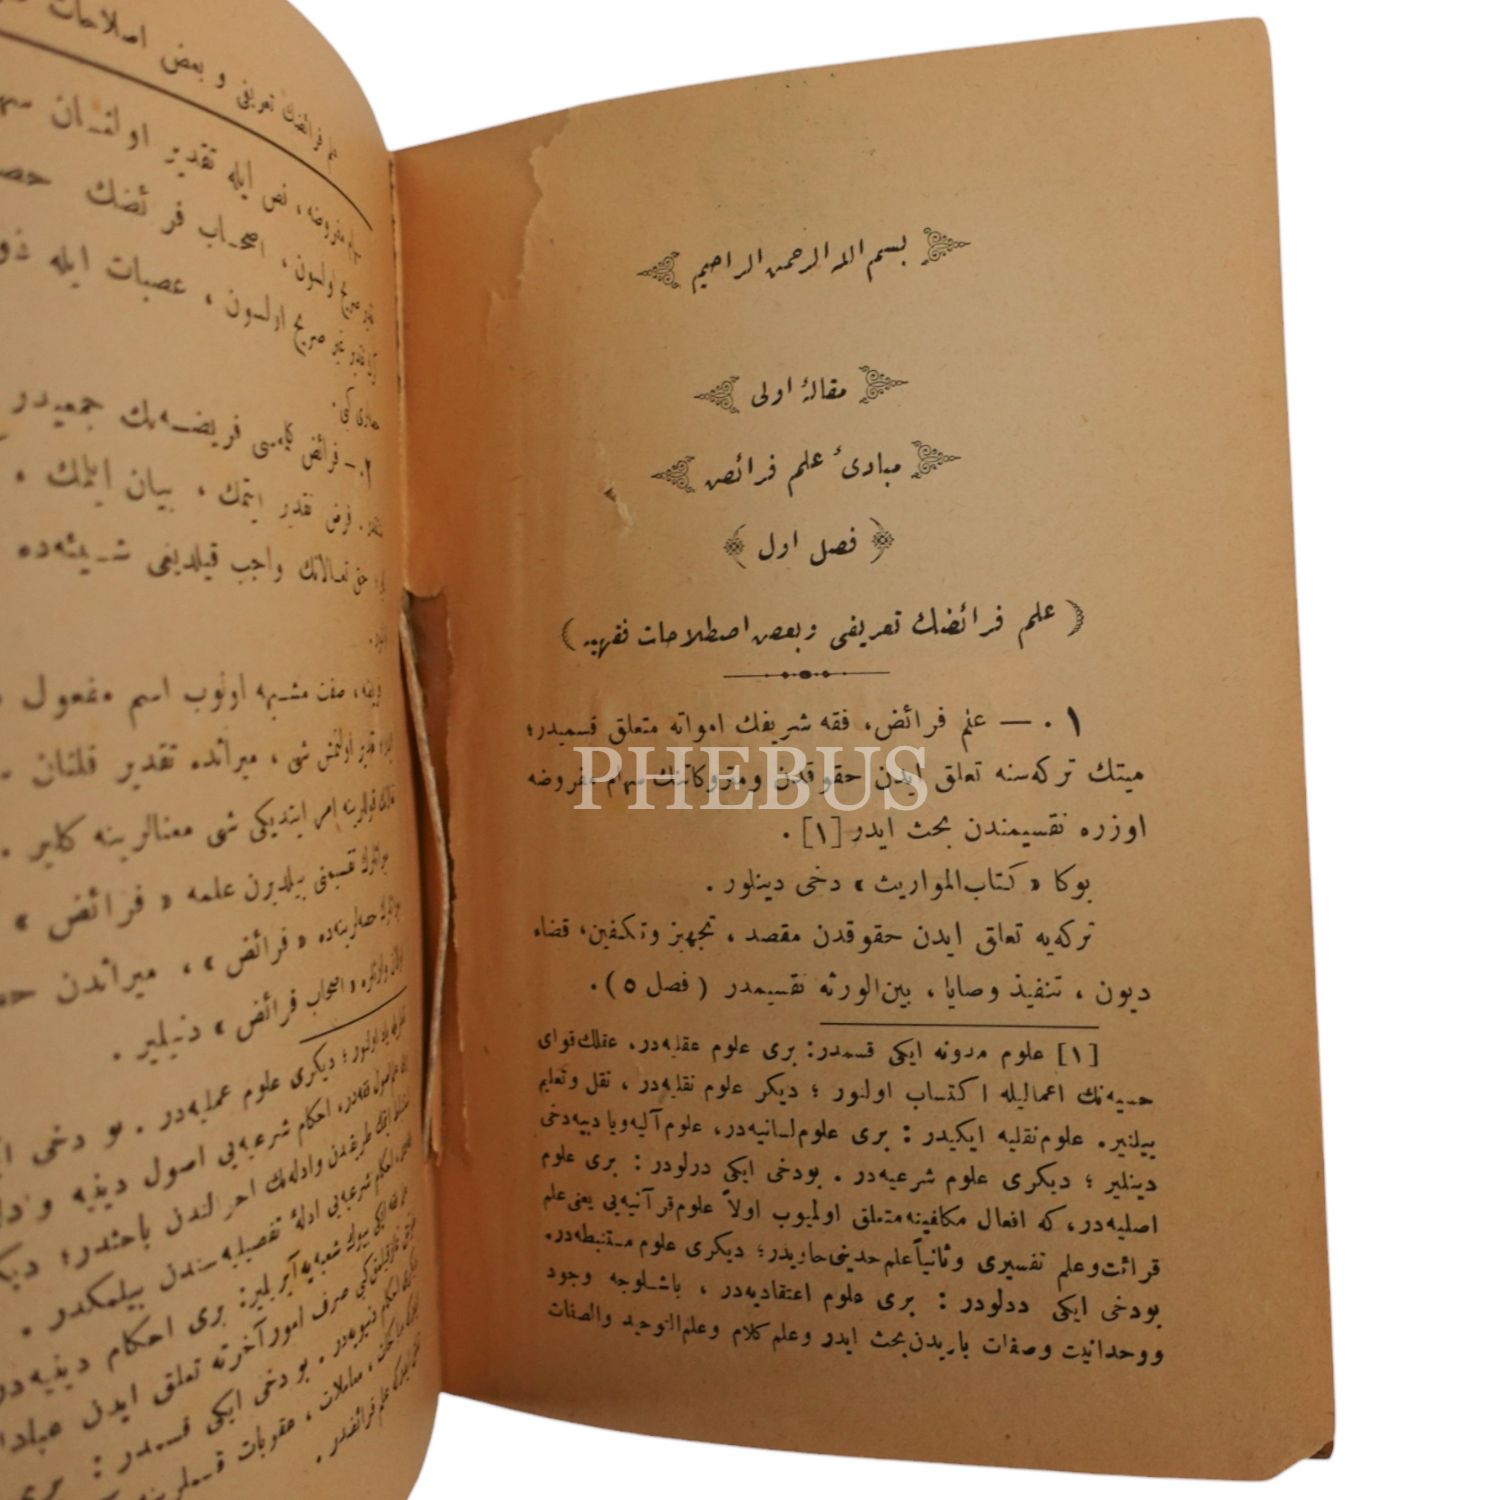 بسم الله الرحمن الرحيم
مقالهٔ اولى
مبادىء علم فرائض
فصل اول
( علم فرائضك تعريفى و بعض اصطلاحات فقهيه )
١ . — علم فرائض، فقه شريفك امواته متعلق قسميدر؛
ميتك تركه‌سنه تعلق ايدن حقوقدن ومتروكاتنك سهام مفروضه
اوزره تقسيمندن بحث ايدر [١] .
بوكا « كتاب‌المواريث » دخى دينلور .
تركه‌يه تعلق ايدن حقوقدن مقصد ، تجهيز وتكفين، قضاء
ديون ، تنفيذ وصايا ، بين‌الورثه تقسيمدر ( فصل ٥ ) .
[١] علوم مدونه ايكى قسمدر: برى علوم عقليه‌در، عقلك قواى
حسيه‌نك اعماليله اكتساب اولنور ؛ ديكر علوم نقليه‌در ، نقل وتعليم
بيلنير. علوم نقليه ايكيدر : برى علوم لسانيه‌در، علوم آليه ويا دبيه دخى
دينلير ؛ ديكرى علوم شرعيه‌در . بودخى ايكى درلودر : برى علوم
اصليه‌در، كه افعال مكلفينه متعلق اولميوب اولاً علوم قرآنيه‌يى يعنى علم
قرائت وعلم تفسيرى وثانياً علم حديثى حاويدر؛ ديكرى علوم مستنبطه‌در.
بودخى ايكى درلودر : برى علوم اعتقاديه‌در ، باشلوجه وجود
ووحدانيت وصفات باريدن بحث ايدر وعلم كلام وعلم التوحيد والصفات
علم فرائضك تعريفى و بعض اصلاحات
مفروضه ، نص ايله تقدير اولنان
صريح اولسون ، اصحاب فرائضك
صريح اولسون ، عصبات ايله
٢. — فرائض كلمه‌سى فريضه‌نك جمعيدر
فرض تقدير ايتمك ، بيان ايتمك ،
حق تعالانك واجب قيلديغى شيئه‌ده
صفت مشبهه اولوب اسم مفعول
اولنمش شى ، ميراثده تقدير قلنان
امر ايتديكى شى معنالرينه كلير .
بيلديرن علمه « فرائض »
« فرائض » ، ميراثدن
« اصحاب فرائض » دنيلير .
ديكرى علوم عمليه‌در . بو دخى
احكام شرعيه‌يى اصول دينيه
احوالندن باحثدر؛
احكام شرعيه‌يى ادلهٔ تفصيليه‌سندن بيلمكدر .
برى احكام دينيه‌در
صرف امور آخرته تعلق ايدن
بودخى ايكى قسمدر : برى
معاملات ، عقوبات
علم فرائضدر .
PHEBUS